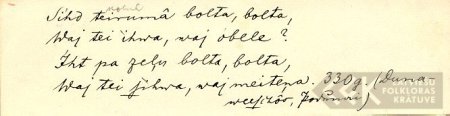 Sihd teirumâ bolta, bolta,
Waj tei ihwa, waj obele?
Iht pa zeļu bolta, bolta,
Waj tei jihwa, waj meiteņa. 330g. (Duma
LATVIEŠU
FOLKLORAS
KRĀTUVE